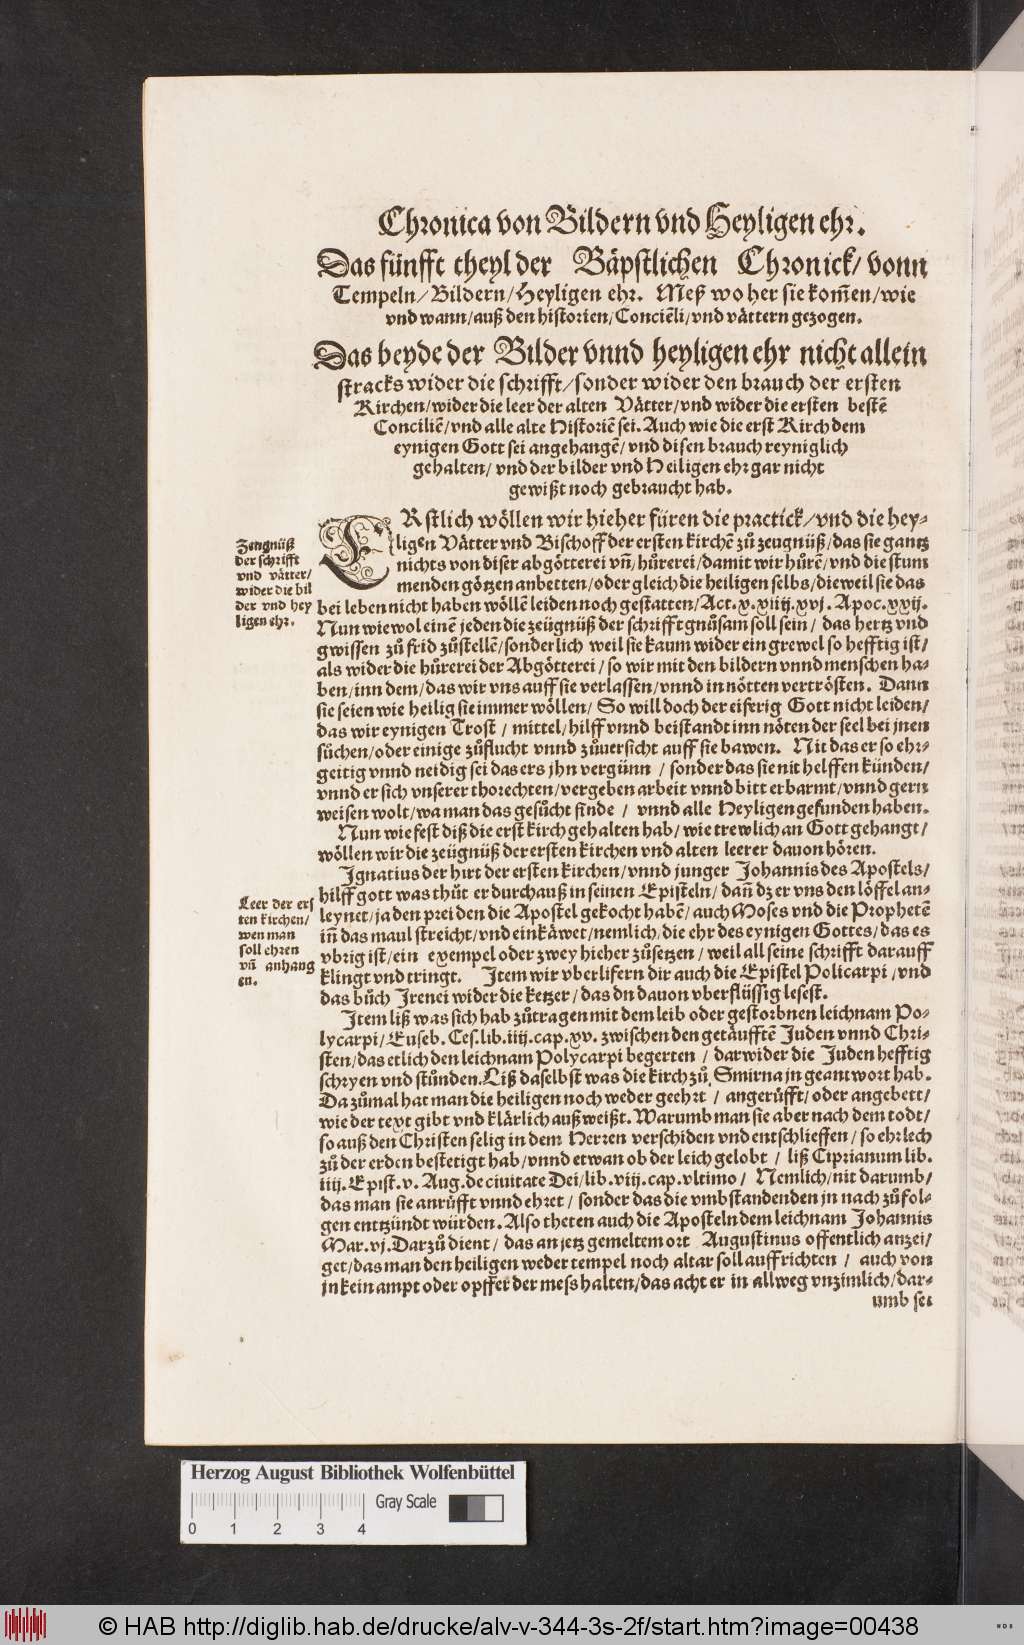 Chronica von Bildern vnd Heyligen ehr.
Das fünfft theyl der Bäpstlichen Chronick/ vonn
Tempeln/ Bildern/ Heyligen ehr. Meß wo her sie kom̄en/ wie
vnd wann/ auß den historien/ Conciẽli/ vnd vättern gezogen.
Das beyde der Bilder vnnd heyligen ehr nicht allein
stracks wider die schrifft/ sonder wider den brauch der ersten
Kirchen/ wider die leer der alten Vätter/ vnd wider die ersten bestẽ
Conciliẽ/ vnd alle alte Historiẽ sei. Auch wie die erst Kirch dem
eynigen Gott sei angehangẽ/ vnd disen brauch reyniglich
gehalten/ vnd der bilder vnd Heiligen ehr gar nicht
gewißt noch gebraucht hab.
Zeugnüß
der schrifft
vnd vätter/
wider die bil
der vnd hey
ligen ehr.
ERstlich wöllen wir hieher füren die practick/ vnd die hey-
ligen Vätter vnd Bischoff der ersten kirchẽ zů zeugnüß/ das sie gantz
nichts von diser abgötterei vn̄/ hůrerei/ damit wir hůrẽ/ vnd die stum
menden götzen anbetten/ oder gleich die heiligen selbs/ dieweil sie das
bei leben nicht haben wöllẽ leiden noch gestatten/ Act.x.xiiij.xvj. Apoc.xxij.
Nun wiewol einẽ jeden die zeügnüß der schrifft gnůsam soll sein/ das hertz vnd
gwissen zů frid zůstellẽ/ sonderlich weil sie kaum wider ein grewel so hefftig ist/
als wider die hůrerei der Abgötterei/ so wir mit den bildern vnnd menschen ha-
ben/ inn dem/ das wir vns auff sie verlassen/ vnnd in nötten vertrösten. Dann
sie seien wie heilig sie immer wöllen/ So will doch der eiferig Gott nicht leiden/
das wir eynigen Trost/ mittel/ hilff vnnd beistandt inn nöten der seel bei jnen
süchen/ oder einige zůflucht vnnd zůuersicht auff sie bawen. Nit das er so ehr-
geitig vnnd neidig sei das ers jhn vergünn/ sonder das sie nit helffen künden/
vnnd er sich vnserer thorechten/ vergeben arbeit vnnd bitt erbarmt/ vnnd gern
weisen wolt/ wa man das gesůcht finde/ vnnd alle Heyligen gefunden haben.
Nun wie fest diß die erst kirch gehalten hab/ wie trewlich an Gott gehangt/
wöllen wir die zeügnüß der ersten kirchen vnd alten leerer dauon hören.
Leer der ers
ten kirchen/
wen man
soll ehren
vn̄ anhang
en.
Ignatius der hirt der ersten kirchen/ vnnd junger Johannis des Apostels/
hilff gott was thůt er durchauß in seinen Episteln/ dan̄ dz er vns den löffel an-
leynet/ ja den prei den die Apostel gekocht habẽ/ auch Moses vnd die Prophetẽ
in̄ das maul streicht/ vnd einkäwet/ nemlich/ die ehr des eynigen Gottes/ das es
vbrig ist/ ein exempel oder zwey hieher zůsetzen/ weil all seine schrifft darauff
klingt vnd tringt. Item wir vberlifern dir auch die Epistel Policarpi/ vnd
das bůch Irenei wider die ketzer/ das du dauon vberflüssig lesest.
Item liß was sich hab zůtragen mit dem leib oder gestorbnen leichnam Po-
lycarpi/ Euseb. Ces.lib.iiij.cap.xv. zwischen den getäufftẽ Juden vnnd Chri-
sten/ das etlich den leichnam Polycarpi begerten/ darwider die Juden hefftig
schryen vnd stůnden. Liß daselbst was die kirch zů Smirna jn geantwort hab.
Da zůmal hat man die heiligen noch weder geehrt/ angerůfft/ oder angebett/
wie der text gibt vnd klärlich außweißt. Warumb man sie aber nach dem todt/
so auß den Christen selig in dem Herren verschiden vnd entschlieffen/ so ehrlech
zů der erden bestetigt hab/ vnnd etwan ob der leich gelobt/ liß Ciprianum lib.
iiij. Epist.v. Aug.de ciuitate Dei/ lib.viij.cap.vltimo/ Nemlich/ nit darumb/
das man sie anrůfft vnnd ehret/ sonder das die vmbstandenden jn nach zůfol-
gen entzündt würden. Also theten auch die Aposteln dem leichnam Johannis
Mar.vj. Darzů dient/ das an jetz gemeltem ort Augustinus offentlich anzei/
get/ das man den heiligen weder tempel noch altar soll auffrichten/ auch von
jn kein ampt oder opffer der mess halten/ das acht er in allweg vnzimlich/ dar-
umb sei
Herzog August Bibliothek Wolfenbüttel
Gray Scale
0 1 2 3 4
© HAB http://diglib.hab.de/drucke/alv-v-344-3s-2f/start.htm?image=00438